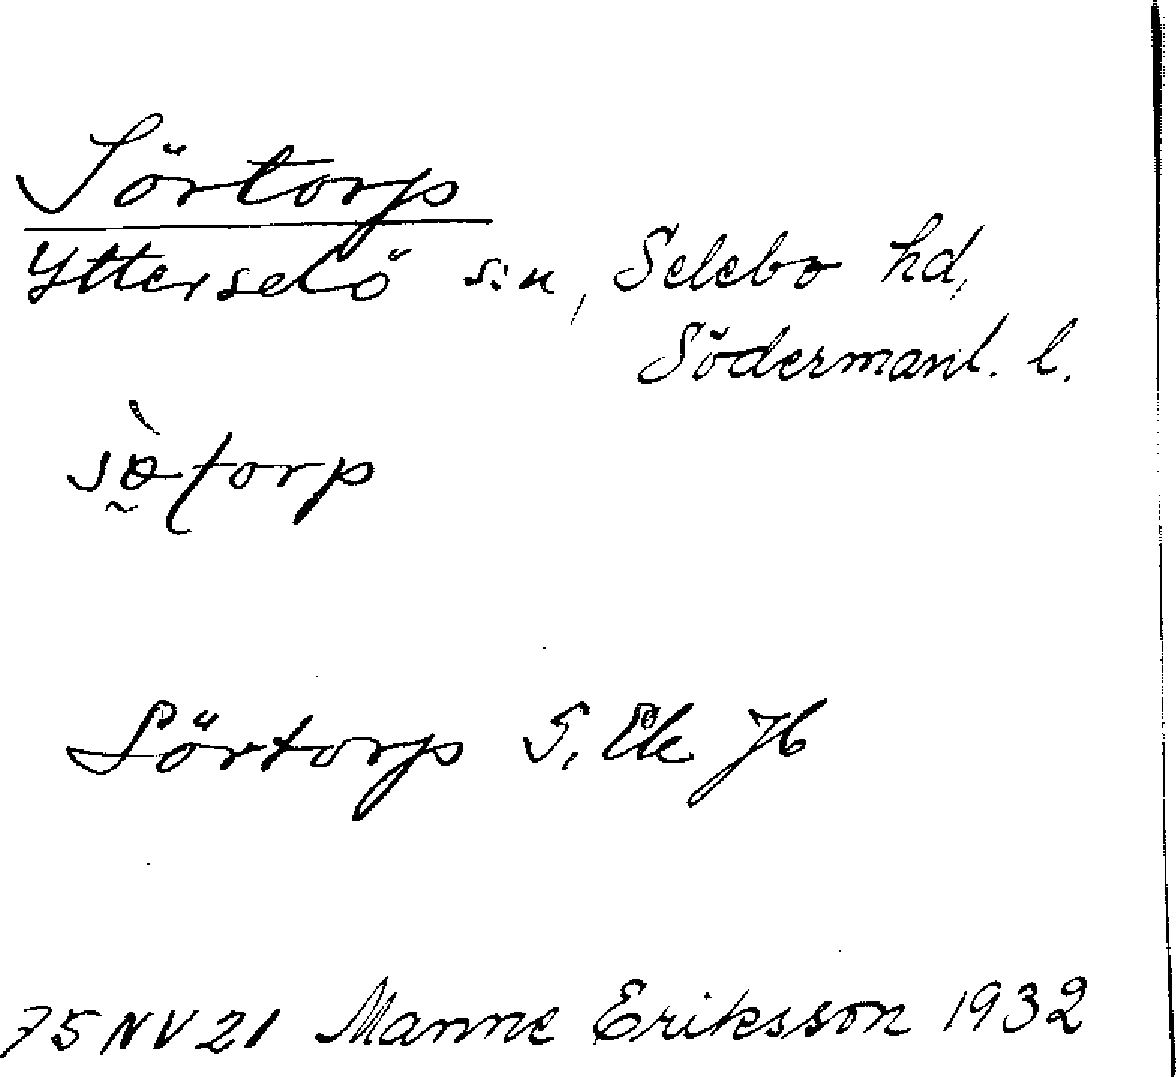 Sörtorp
Ytterselö s:n, Selebo hd,
Södermanl. l.
sø̀torp
Sörtorp S. Ek Jb
75 NV 21 Manne Eriksson 1932